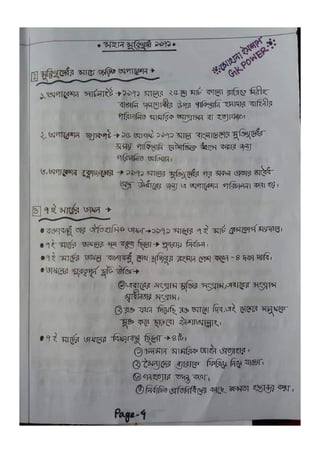 • মহান মুক্তিযুদ্ধ ১৯৭১ •
GK POWER
১ মুক্তিযুদ্ধের সাথে জড়িত অপারেশন
১. অপারেশন সার্চলাইট → ১৯৭১ সালের ২৫ শে মার্চ কালো রাত্রিতে নিরীহ
বাঙালি জনগোষ্ঠীর উপর পাকিস্তানি হানাদার বাহিনীর
পরিচালিত সামরিক অত্যাচার বা হত্যাযজ্ঞ।
২. অপারেশন জ্যাকপট → ১৫ আগস্ট ১৯৭১ সালে বাংলাদেশে মুক্তিযুদ্ধের
সময় পাকিস্তানি ধ্বংস করার জন্য
পরিচালিত অভিযান।
৩. অপারেশন → ১৯৭১ সালে মুক্তিযুদ্ধের পর
উদ্ধারের জন্য এ অপারেশন পরিচালনা করা হয়।
৭ই মার্চের ভাষণ →
• বঙ্গবন্ধু তার ঐতিহাসিক ভাষণ → ১৯৭১ সালের ৭ই মার্চ রেসকোর্স ময়দানে।
• ৭ই মার্চের ভাষণের মূল বক্তব্য ছিলো →
• ৭ই মার্চের ভাষণে বঙ্গবন্ধু শেখ মুজিবুর রহমান পেশ করেন - ৪ দফা দাবি।
• ভাষণের গুরুত্বপূর্ণ দুটি উক্তি →
① এবারের সংগ্রাম মুক্তির সংগ্রাম, এবারের সংগ্রাম
স্বাধীনতার সংগ্রাম।
② রক্ত যখন দিয়েছি রক্ত আরো দিব, এই দেশের মানুষকে
মুক্ত করে ছাড়বো ইনশাআল্লাহ।
• ৭ই মার্চের ভাষণের বিষয়বস্তু ছিলো → ৪টি।
① চলমান সামরিক আইন প্রত্যাহার।
② সৈন্যদের ব্যারাকে ফিরিয়ে নিয়ে যাওয়া।
③ গণহত্যার তদন্ত করা।
④ নির্বাচিত প্রতিনিধিদের কাছে ক্ষমতা হস্তান্তর করা।
Page-4